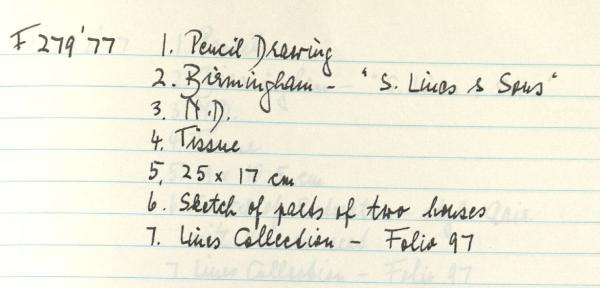 F 279'77 1. Pencil Drawing
2. Birmingham - "S. Lines & Sons"
3. N.D.
4. Tissue
5. 25 x 17 cm
6. Sketch of parts of two houses
7. Lines Collection - Folio 97